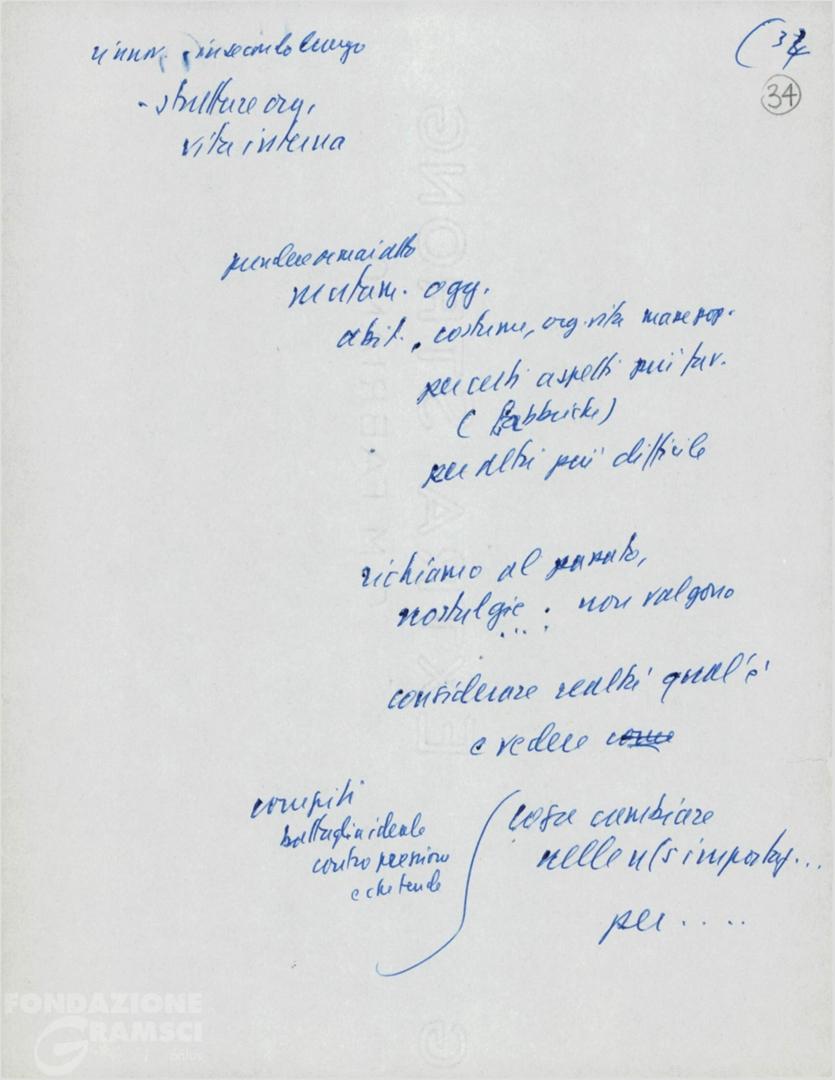 rinnov. in secondo luogo
(34
34
- strutture org.
vita interna
prendere ormai atto
mutam. ogg.
abit., costume, org. vita masse pop.
per certi aspetti più fav.
(fabbriche)
per altri più difficile
richiamo al passato,
nostalgie : non valgono
...
considerare realtà qual'è
e vedere come
compiti
battaglia ideale
contro pressioni
e che tende
cosa cambiare
nelle n/s impostaz...
per ....
FONDAZIONE
GRAMSCI
onlus